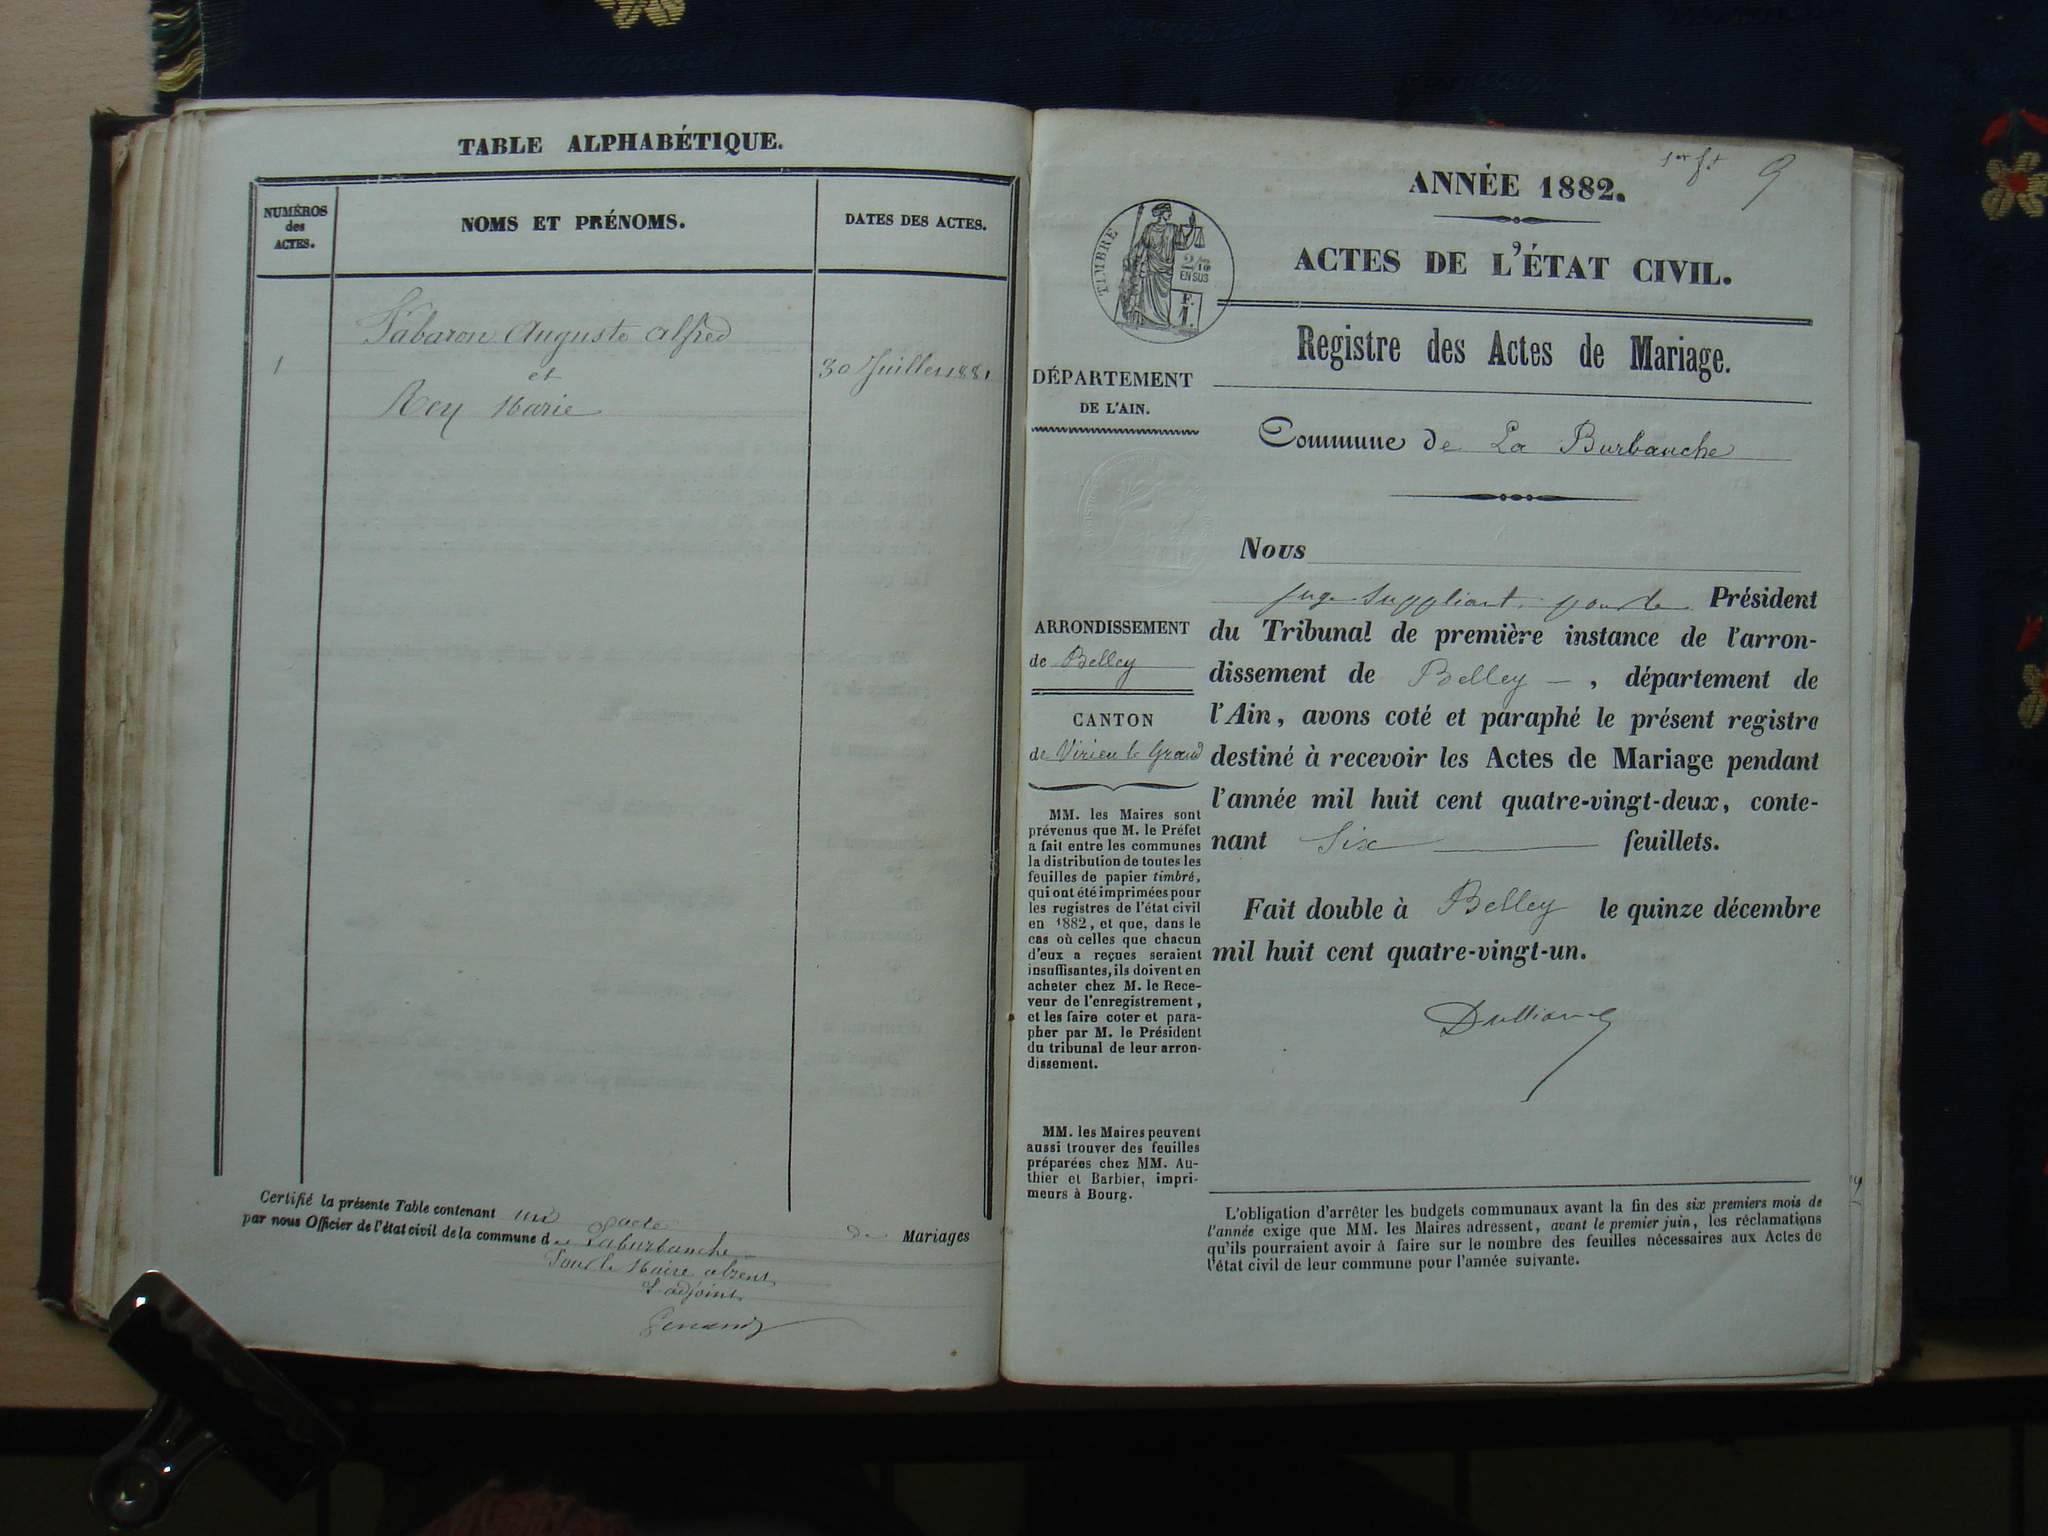 TABLE ALPHABÉTIQUE.
NUMÉROS
des
ACTES.
NOMS ET PRÉNOMS.
DATES DES ACTES.
Auguste Alfred
1
et
30 Juillet 1881
Rey Marie
Certifié la présente Table contenant un acte de Mariages
par nous Officier de l'état civil de la commune de Laburbanche
Pour le Maire absent
L'adjoint
ANNÉE 1882.
1er ft
9
ACTES DE L'ÉTAT CIVIL.
TIMBRE
2/10
EN SUS
F.
1.
Registre des Actes de Mariage.
DÉPARTEMENT
DE L'AIN.
Commune de La Burbanche
ARRONDISSEMENT
de Belley
CANTON
de Virieu le Grand
MM. les Maires sont
prévenus que M. le Préfet
a fait entre les communes
la distribution de toutes les
feuilles de papier timbré,
qui ont été imprimées pour
les registres de l'état civil
en 1882, et que, dans le
cas où celles que chacun
d'eux a reçues seraient
insuffisantes, ils doivent en
acheter chez M. le Rece-
veur de l'enregistrement,
et les faire coter et para-
pher par M. le Président
du tribunal de leur arron-
dissement.
MM. les Maires peuvent
aussi trouver des feuilles
préparées chez MM. Au-
thier et Barbier, impri-
meurs à Bourg.
Nous
juge suppléant, pour le Président
du Tribunal de première instance de l'arron-
dissement de Belley, département de
l'Ain, avons coté et paraphé le présent registre
destiné à recevoir les Actes de Mariage pendant
l'année mil huit cent quatre-vingt-deux, conte-
nant Six feuillets.
Fait double à Belley le quinze décembre
mil huit cent quatre-vingt-un.
L'obligation d'arrêter les budgets communaux avant la fin des six premiers mois de
l'année exige que MM. les Maires adressent, avant le premier juin, les réclamations
qu'ils pourraient avoir à faire sur le nombre des feuilles nécessaires aux Actes de
l'état civil de leur commune pour l'année suivante.